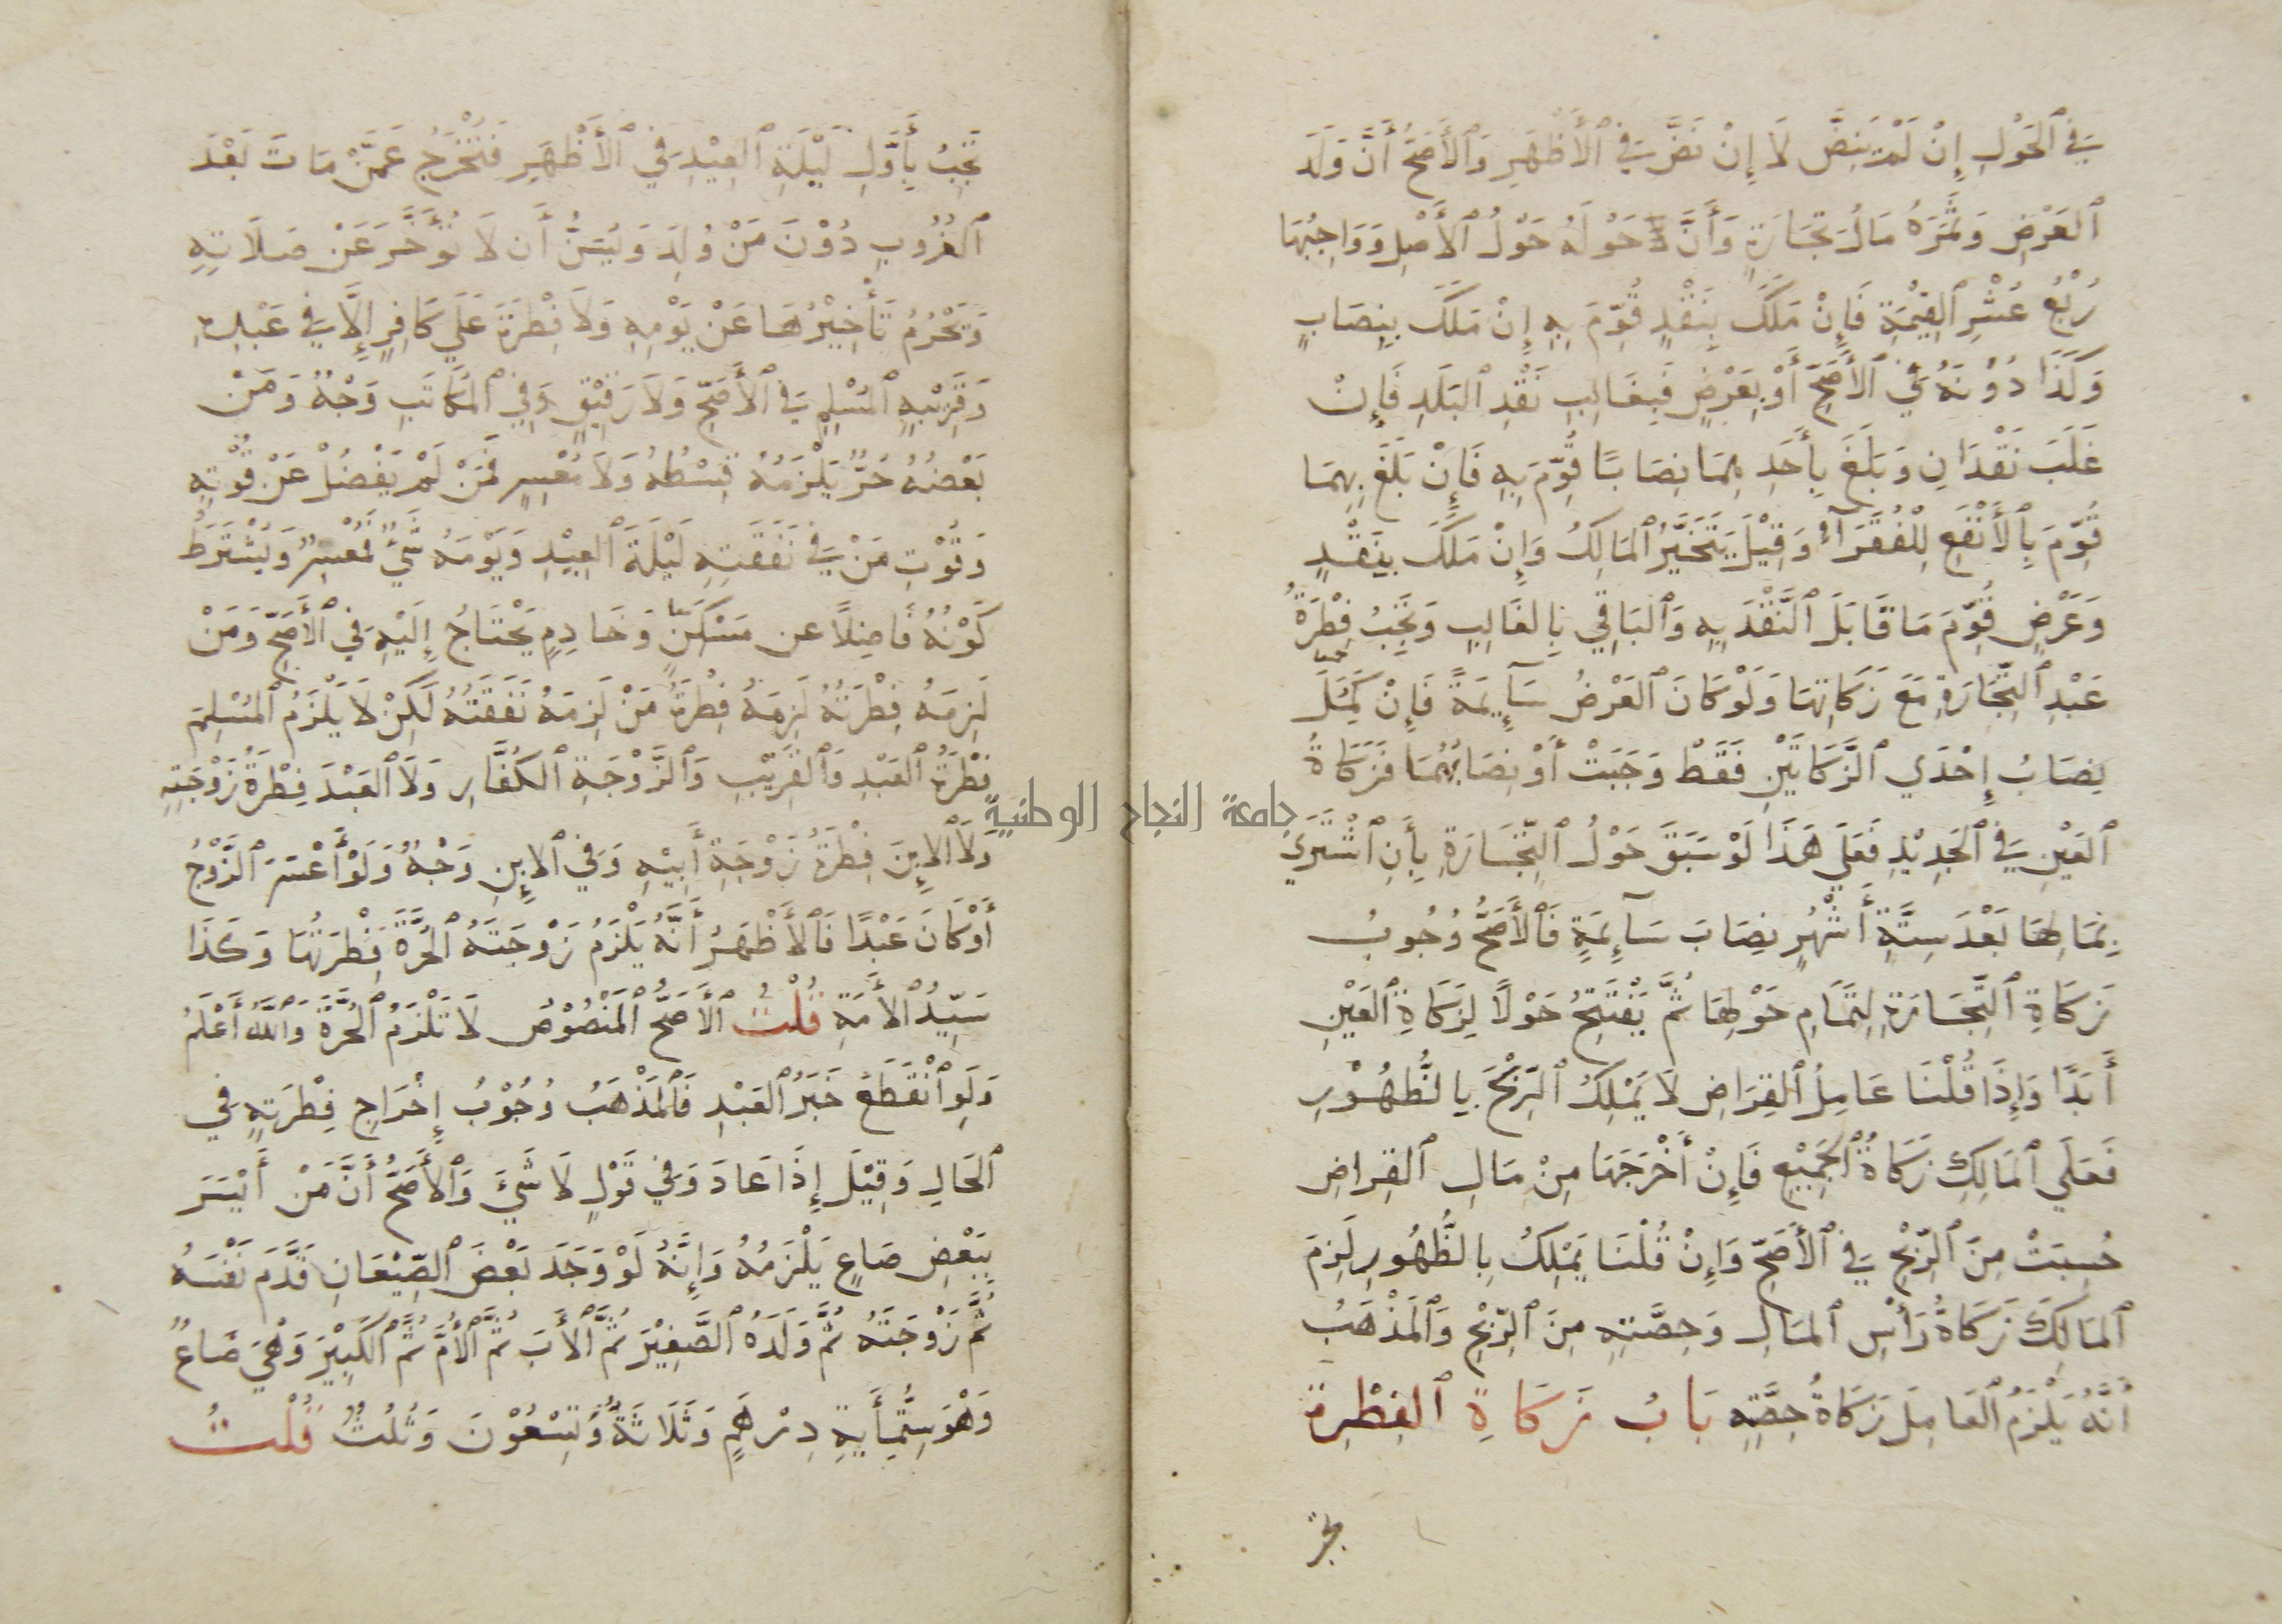 فِي ٱلْحَوْلِ إِنْ لَمْ يَنِضَّ لَا إِنْ نَضَّ فِي ٱلْأَظْهَرِ وَٱلْأَصَحُّ أَنَّ وَلَدَ
ٱلْعَرْضِ وَثَمَرَهُ مَالُ تِجَارَةٍ وَأَنَّ حَوْلَهُ حَوْلُ ٱلْأَصْلِ وَوَاجِبُهَا
رُبْعُ عُشْرِ ٱلْقِيْمَةِ فَإِنْ مَلَكَ بِنَقْدٍ قُوِّمَ بِهِ إِنْ مَلَكَ بِنِصَابٍ
وَكَذَا دُوْنَهُ فِي ٱلْأَصَحِّ أَوْ بِعَرْضٍ فَبِغَالِبِ نَقْدِ ٱلْبَلَدِ فَإِنْ
غَلَبَ نَقْدَانِ وَبَلَغَ بِأَحَدِهِمَا نِصَابًا قُوِّمَ بِهِ فَإِنْ بَلَغَ بِهِمَا
قُوِّمَ بِٱلْأَنْفَعِ لِلْفُقَرَآءِ وَقِيْلَ يَتَخَيَّرُ ٱلْمَالِكُ وَإِنْ مَلَكَ بِنَقْدٍ
وَعَرْضٍ قُوِّمَ مَا قَابَلَ ٱلنَّقْدَ بِهِ وَٱلْبَاقِي بِالْغَالِبِ وَتَجِبُ فِطْرَةُ
عَبْدِ ٱلتِّجَارَةِ مَعَ زَكَاتِهَا وَلَوْ كَانَ ٱلْعَرْضُ سَآئِمَةً فَإِنْ كَمُلَ
نِصَابُ إِحْدَي ٱلزَّكَاتَيْنِ فَقَطْ وَجَبَتْ أَوْ نِصَابُهُمَا فَزَكَاةُ
ٱلْعَيْنِ فِي ٱلْجَدِيْدِ فَعَلَي هَذَا لَوْ سَبَقَ حَوْلُ ٱلتِّجَارَةِ بِأَنِ ٱشْتَرَي
بِمَالِهَا بَعْدَ سِتَّةِ أَشْهُرٍ نِصَابَ سَآئِمَةٍ فَٱلْأَصَحُّ وُجُوبُ
زَكَاةِ ٱلتِّجَارَةِ لِتَمَامِ حَوْلِهَا ثُمَّ يَفْتَتِحُ حَوْلًا لِزَكَاةِ ٱلْعَيْنِ
أَبَدًا وَإِذَا قُلْنَا عَامِلُ ٱلْقِرَاضِ لَا يَمْلِكُ ٱلرِّبْحَ بِالظُّهُوْرِ
فَعَلَي ٱلْمَالِكِ زَكَاةُ ٱلْجَمِيْعِ فَإِنْ أَخْرَجَهَا مِنْ مَالِ ٱلْقِرَاضِ
حُسِبَتْ مِنَ ٱلرِّبْحِ فِي ٱلْأَصَحِّ وَإِنْ قُلْنَا يَمْلِكُ بِالظُّهُورِ لَزِمَ
ٱلْمَالِكَ زَكَاةُ رَأْسِ ٱلْمَالِ وَحِصَّتِهِ مِنَ ٱلرِّبْحِ وَٱلْمَذْهَبُ
أَنَّهُ يَلْزَمُ ٱلْعَامِلَ زَكَاةُ حِصَّتِهِ بَابُ زَكَاةِ ٱلْفِطْرَةِ
تجب
تَجِبُ بِأَوَّلِ لَيْلَةِ ٱلْعِيْدِ فِي ٱلْأَظْهَرِ فَتُخْرَجُ عَمَّنْ مَاتَ بَعْدَ
ٱلْغُرُوبِ دُوْنَ مَنْ وُلِدَ وَيُسَنُّ أَن لَا تُؤَخَّرَ عَنْ صَلَاتِهِ
وَيَحْرُمُ تَأْخِيْرُهَا عَنْ يَوْمِهِ وَلَا فِطْرَةَ عَلَي كَافِرٍ إِلَّا فِي عَبْدِهِ
وَقَرِيْبِهِ ٱلْمُسْلِمِ فِي ٱلْأَصَحِّ وَلَا رَقِيْقٍ وَفِي ٱلْمُكَاتَبِ وَجْهٌ وَمَنْ
بَعْضُهُ حُرٌّ يَلْزَمُهُ قِسْطُهُ وَلَا مُعْسِرٍ فَمَنْ لَمْ يَفْضُلْ عَنْ قُوْتِهِ
وَقُوْتِ مَنْ فِي نَفَقَتِهِ لَيْلَةَ ٱلْعِيْدِ وَيَوْمَهُ شَيْءٌ فَمُعْسِرٌ وَيُشْتَرَطُ
كَوْنُهُ فَاضِلًا عن مَسْكَنٍ وَخَادِمٍ يَحْتَاجُ إِلَيْهِ فِي ٱلْأَصَحِّ وَمَنْ
لَزِمَهُ فِطْرَتُهُ لَزِمَهُ فِطْرَةُ مَنْ لَزِمَهُ نَفَقَتُهُ لَكِنْ لَا يَلْزَمُ ٱلْمُسْلِمَ
فِطْرَةُ ٱلْعَبْدِ وَٱلْقَرِيْبِ وَٱلزَّوْجَةِ ٱلْكُفَّارِ وَلَا ٱلْعَبْدَ فِطْرَةُ زَوْجَتِهِ
وَلَا ٱلْاِبْنَ فِطْرَةُ زَوْجَةِ أَبِيْهِ وَفِي ٱلْاِبْنِ وَجْهٌ وَلَوْ أَعْسَرَ ٱلزَّوْجُ
أَوْ كَانَ عَبْدًا فَٱلْأَظْهَرُ أَنَّهُ يَلْزَمُ زَوْجَتَهُ ٱلْحُرَّةَ فِطْرَتُهَا وَكَذَا
سَيِّدُ ٱلْأَمَةِ قُلْتُ ٱلْأَصَحُّ ٱلْمَنْصُوْصُ لَا تَلْزَمُ ٱلْحُرَّةَ وَٱللّٰهُ أَعْلَمُ
وَلَوِ ٱنْقَطَعَ خَبَرُ ٱلْعَبْدِ فَٱلْمَذْهَبُ وُجُوْبُ إِخْرَاجِ فِطْرَتِهِ فِي
ٱلْحَالِ وَقِيْلَ إِذَا عَادَ وَفِي قَوْلٍ لَا شَيْءَ وَٱلْأَصَحُّ أَنَّ مَنْ أَيْسَرَ
بِبَعْضِ صَاعٍ يَلْزَمُهُ وَإِنَّهُ لَوْ وَجَدَ بَعْضَ ٱلصِّيْعَانِ قَدَّمَ نَفْسَهُ
ثُمَّ زَوْجَتَهُ ثُمَّ وَلَدَهُ ٱلصَّغِيْرَ ثُمَّ ٱلْأَبَ ثُمَّ ٱلْأُمَّ ثُمَّ ٱلْكَبِيْرَ وَهْيَ صَاعٌ
وَهُوَ سِتُّمِأَيَةِ دِرْهَمٍ وَثَلَاثَةٌ وَتِسْعُوْنَ وَثُلُثٌ قُلْتُ
جامعة النجاح الوطنية